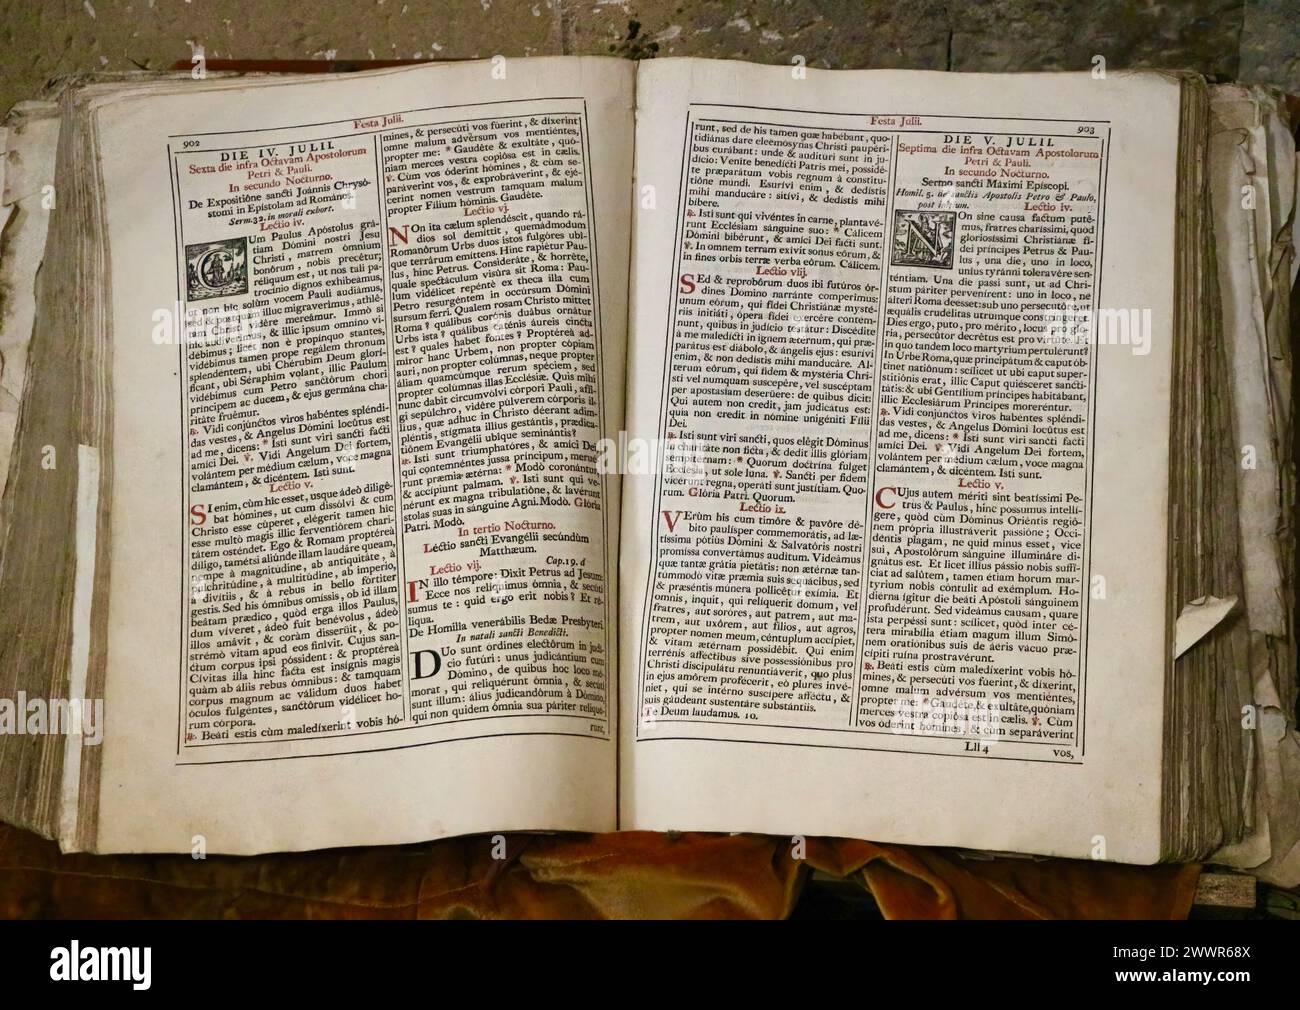 902
Festa Julii.
DIE IV. JULII.
Sexta die infra Octavam Apostolorum
Petri & Pauli.
In secundo Nocturno.
De Expositióne sancti Joánnis Chrysó-
stomi in Epístolam ad Romános.
Serm. 32. in morali exhort.
Lectio iv.
CUm Paulus Apóstolus grá-
tiam Dómini nostri Jesu
Christi, matrem ómnium
bonórum, nobis precétur;
réliquum est, ut nos tali pa-
trocínio dignos exhibeámus,
ut non hic solùm vocem Pauli audiámus,
sed & postquam illuc migravérimus, athlé-
tam Christi vidére mereámur. Immò si
hîc audivérimus, & illic ipsum omníno vi-
débimus; licèt non è propínquo stantes,
vidébimus tamen prope regálem thronum
spléndentem, ubi Chérubim Deum glorí-
ficant, ubi Séraphim volant, illic Paulum
vidébimus cum Petro sanctórum chori
príncipem ac ducem, & ejus germána cha-
ritáte fruémur.
℟. Vidi conjúnctos viros habéntes spléndi-
das vestes, & Angelus Dómini locútus est
ad me, dicens: * Isti sunt viri sancti facti
amíci Dei. ℣. Vidi Angelum Dei fortem,
volántem per médium cælum, voce magna
clamántem, & dicéntem. Isti sunt.
Lectio v.
SI enim, cùm hîc esset, usque ádeò dilígé-
bat hómines, ut cum dissólvi & cum
Christo esse cúperet, elégerit tamen hîc
esse multò magis illic ferventiórem chari-
tátem osténdet. Ego & Romam proptéreà
díligo, tamétsi aliúnde illam laudáre queam,
nempe à magnitúdine, ab antiquitáte, à
pulchritúdine, à multitúdine, ab império,
à divítiis, & à rebus in bello fórtiter
gestis. Sed his ómnibus omíssis, ob id illam
beátam prædico, quòd erga illos Paulus,
dum víveret, ádeò fuit benévolus, ádeò
illos amávit, & coràm disserúit, & po-
strémò vitam apud eos finívit. Cujus san-
ctum corpus ipsi póssident: & proptéreà
Cívitas illa hinc facta est insígnis magis
quàm ab áliis rebus ómnibus: & tamquam
corpus magnum ac válidum duos habet
óculos fulgéntes, sanctórum vidélicet ho-
rum córpora.
℟. Beáti estis cùm maledíxerint vobis hó-
mines, & persecúti vos fúerint, & díxerint
omne malum advèrsum vos mentiéntes,
propter me: * Gaudéte & exultáte, quó-
niam merces vestra copiósa est in cælis.
℣. Cùm vos óderint hómines, & cùm se-
paráverint vos, & exprobráverint, & ejé-
cerint nomen vestrum tamquam malum
propter Fílium hóminis. Gaudéte.
Lectio vj.
NOn ita cælum splendéscit, quando rá-
dios sol demíttit, quemádmodum
Romanórum Urbs duos istos fulgóres ubí-
que terrárum emíttens. Hinc rapiétur Pau-
lus, hinc Petrus. Consideráte, & horréte,
quale spectáculum visúra sit Roma: Pau-
lum vidélicet repéntè ex theca illa cum
Petro resurgéntem in occúrsum Dómini
sursum ferri. Qualem rosam Christo mittet
Roma? quálibus corónis duábus ornátur
Urbs ista? quálibus caténis áureis cincta
est? quales habet fontes? Proptéreà ad-
míror hanc Urbem, non propter cópiam
auri, non propter colúmnas, neque propter
áliam quamcúmque rerum spéciem, sed
propter colúmnas illas Ecclésiæ. Quis mihi
nunc dabit circumvólvi córpori Pauli, affí-
gi sepúlchro, vidére púlverem córporis il-
líus, quæ adhuc in Christo déerant adim-
pléntis, stígmata illíus gestántis, prædica-
tiónem Evangélii ubíque seminántis?
℟. Isti sunt triumphatóres, & amíci Dei,
qui contemnéntes jussa príncipum, merué-
runt prǽmia ætérna: * Modò coronántur,
& accípiunt palmam. ℣. Isti sunt qui ve-
nérunt ex magna tribulatióne, & lavérunt
stolas suas in sánguine Agni. Modò. Glória
Patri. Modò.
In tertio Nocturno.
Léctio sancti Evangélii secúndùm
Matthæum.
Lectio vij. Cap. 19. d
IN illo témpore: Dixit Petrus ad Jesum:
Ecce nos relíquimus ómnia, & secúti
sumus te: quid ergo erit nobis? Et ré-
liqua.
De Homilía venerábilis Bedæ Presbyteri.
In natali sancti Benedicti.
DUo sunt órdines electórum in judí-
cio futúri: unus judicántium cum
Dómino, de quibus hoc loco mé-
morat, qui reliquérunt ómnia, & secúti
sunt illum: álius judicandórum à Dómino,
qui non quidem ómnia sua páriter reliqué-
runt,
Festa Julii.
903
runt, sed de his tamen quæ habébant, quo-
tidiánas dare eleemósynas Christi paupéri-
bus curábant: unde & auditúri sunt in ju-
dício: Veníte benedícti Patris mei, possidé-
te præparátum vobis regnum à constitu-
tióne mundi. Esurívi enim, & dedístis
mihi manducáre: sitívi, & dedístis mihi
bíbere.
℟. Isti sunt qui vivéntes in carne, plantavé-
runt Ecclésiam sánguine suo: * Cálicem
Dómini bibérunt, & amíci Dei facti sunt.
℣. In omnem terram exívit sonus eórum, &
in fines orbis terræ verba eórum. Cálicem.
Lectio viij.
SEd & reprobórum duos ibi futúros ór-
dines Dómino narránte compérimus:
unum eórum, qui fídei Christiánæ mysté-
riis initiáti, ópera fídei exercére contém-
nunt, quibus in judício testátur: Discédite
à me maledícti in ignem ætérnum, qui præ-
parátus est diábolo, & ángelis ejus: esurívi
enim, & non dedístis mihi manducáre. Al-
terum eórum, qui fidem & mystéria Chri-
sti vel numquam suscepére, vel suscéptam
per apostasíam deseruére: de quibus dicit:
Qui autem non credit, jam judicátus est:
quia non credit in nómine unigéniti Fílii
Dei.
℟. Isti sunt viri sancti, quos elégit Dóminus
in charitáte non ficta, & dedit illis glóriam
sempitérnam: * Quorum doctrína fulget
Ecclésia, ut sole luna. ℣. Sancti per fidem
vicérunt regna, operáti sunt justítiam. Quo-
rum. Glória Patri. Quorum.
Lectio ix.
VErùm his cum timóre & pavóre dé-
bito paulísper commemorátis, ad læ-
tíssima pótiùs Dómini & Salvatóris nostri
promíssa convertámus audítum. Videámus
quæ tantæ grátia pietátis: non ætérnæ tan-
tummodò vitæ prǽmia suis sequácibus, sed
& præséntis múnera pollicétur exímia. Et
omnis, inquit, qui relíquerit domum, vel
fratres, aut soróres, aut patrem, aut ma-
trem, aut uxórem, aut fílios, aut agros,
propter nomen meum, céntuplum accípiet,
& vitam ætérnam possidébit. Qui enim
terrénis afféctibus sive possessiónibus pro
Christi discipulátu renuntiáverit, quo plus
in ejus amórem profécerit, eò plures invé-
niet, qui se intérno suscípere afféctu, &
suis gáudeant sustentáre substántiis.
Te Deum laudamus. 10.
DIE V. JULII.
Septima die infra Octavam Apostolorum
Petri & Pauli.
In secundo Nocturno.
Sermo sancti Máximi Epíscopi.
Homil. 5. de sanctis Apostolis Petro & Paulo,
post initium. Lectio iv.
NOn sine causa factum putê-
mus, fratres charíssimi, quòd
gloriosíssimi Christiánæ fí-
dei príncipes Petrus & Pau-
lus, una die, uno in loco,
uníus tyránni toleravére sen-
téntiam. Una die passi sunt, ut ad Chri-
stum páriter pervenírent: uno in loco, ne
álteri Roma deésset: sub uno persecutóre, ut
æquális crudélitas utrúmque constríngeret.
Dies ergo, puto, pro mérito, locus pro gló-
ria, persecútor decrétus est pro virtúte. Et
in quo tandem loco martyrium pertulérunt?
In Urbe Roma, quæ principátum & caput ób-
tinet natiónum: scílicet ut ubi caput super-
stitiónis erat, illic Caput quiésceret sancti-
tátis: & ubi Gentílium príncipes habitábant,
illic Ecclesiárum Príncipes moreréntur.
℟. Vidi conjúnctos viros habéntes spléndi-
das vestes, & Angelus Dómini locútus est
ad me, dicens: * Isti sunt viri sancti facti
amíci Dei. ℣. Vidi Angelum Dei fortem,
volántem per médium cælum, voce magna
clamántem, & dicéntem. Isti sunt.
Lectio v.
CUjus autem mériti sint beatíssimi Pe-
trus & Paulus, hinc póssumus intellí-
gere, quòd cùm Dóminus Oriéntis regió-
nem própria illustráverit passióne; Occi-
déntis plagam, ne quid minus esset, vice
sui, Apostolórum sánguine illumináre di-
gnátus est. Et licet illíus pássio nobis suffí-
ciat ad salútem, tamen étiam horum mar-
tyrium nobis cóntulit ad exémplum. Ho-
diérna ígitur die beáti Apóstoli sánguinem
profudérunt. Sed videámus causam, quare
ista perpéssi sunt: scílicet, quòd inter cé-
tera mirabília étiam magum illum Simó-
nem oratiónibus suis de áeris vácuo præ-
cípiti ruína prostravérunt.
℟. Beáti estis cùm maledíxerint vobis hó-
mines, & persecúti vos fúerint, & díxerint,
omne malum advérsum vos mentiéntes,
propter me: * Gaudéte, & exultáte, quóniam
merces vestra copiósa est in cælis. ℣. Cùm
vos óderint hómines, & cùm separáverint
Lll 4
vos,
alamy
Image ID: 2WWR68X
www.alamy.com